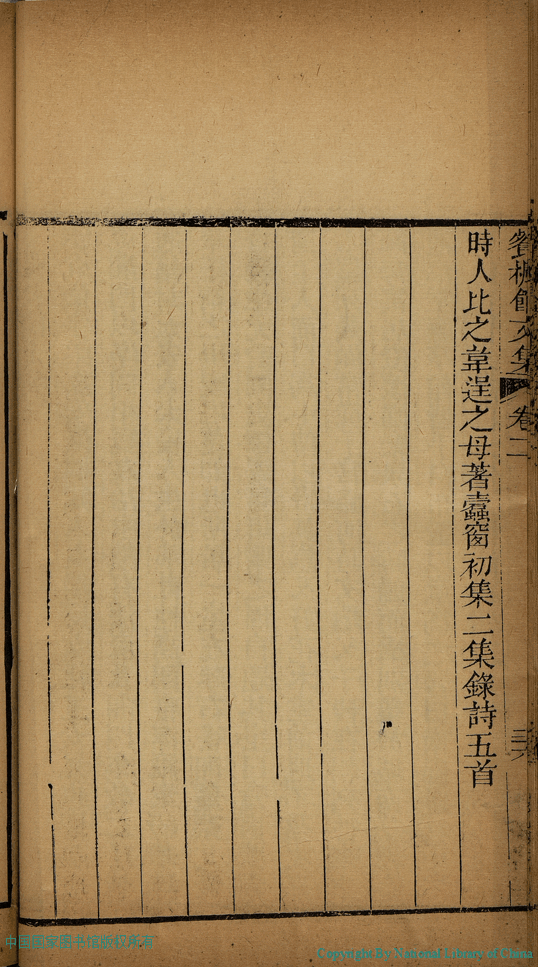 餐楓館文集 卷二
時人比之韋逞之母著蠹窗初集二集錄詩五首
中国国家图书馆版权所有
Copyright By National Library of China